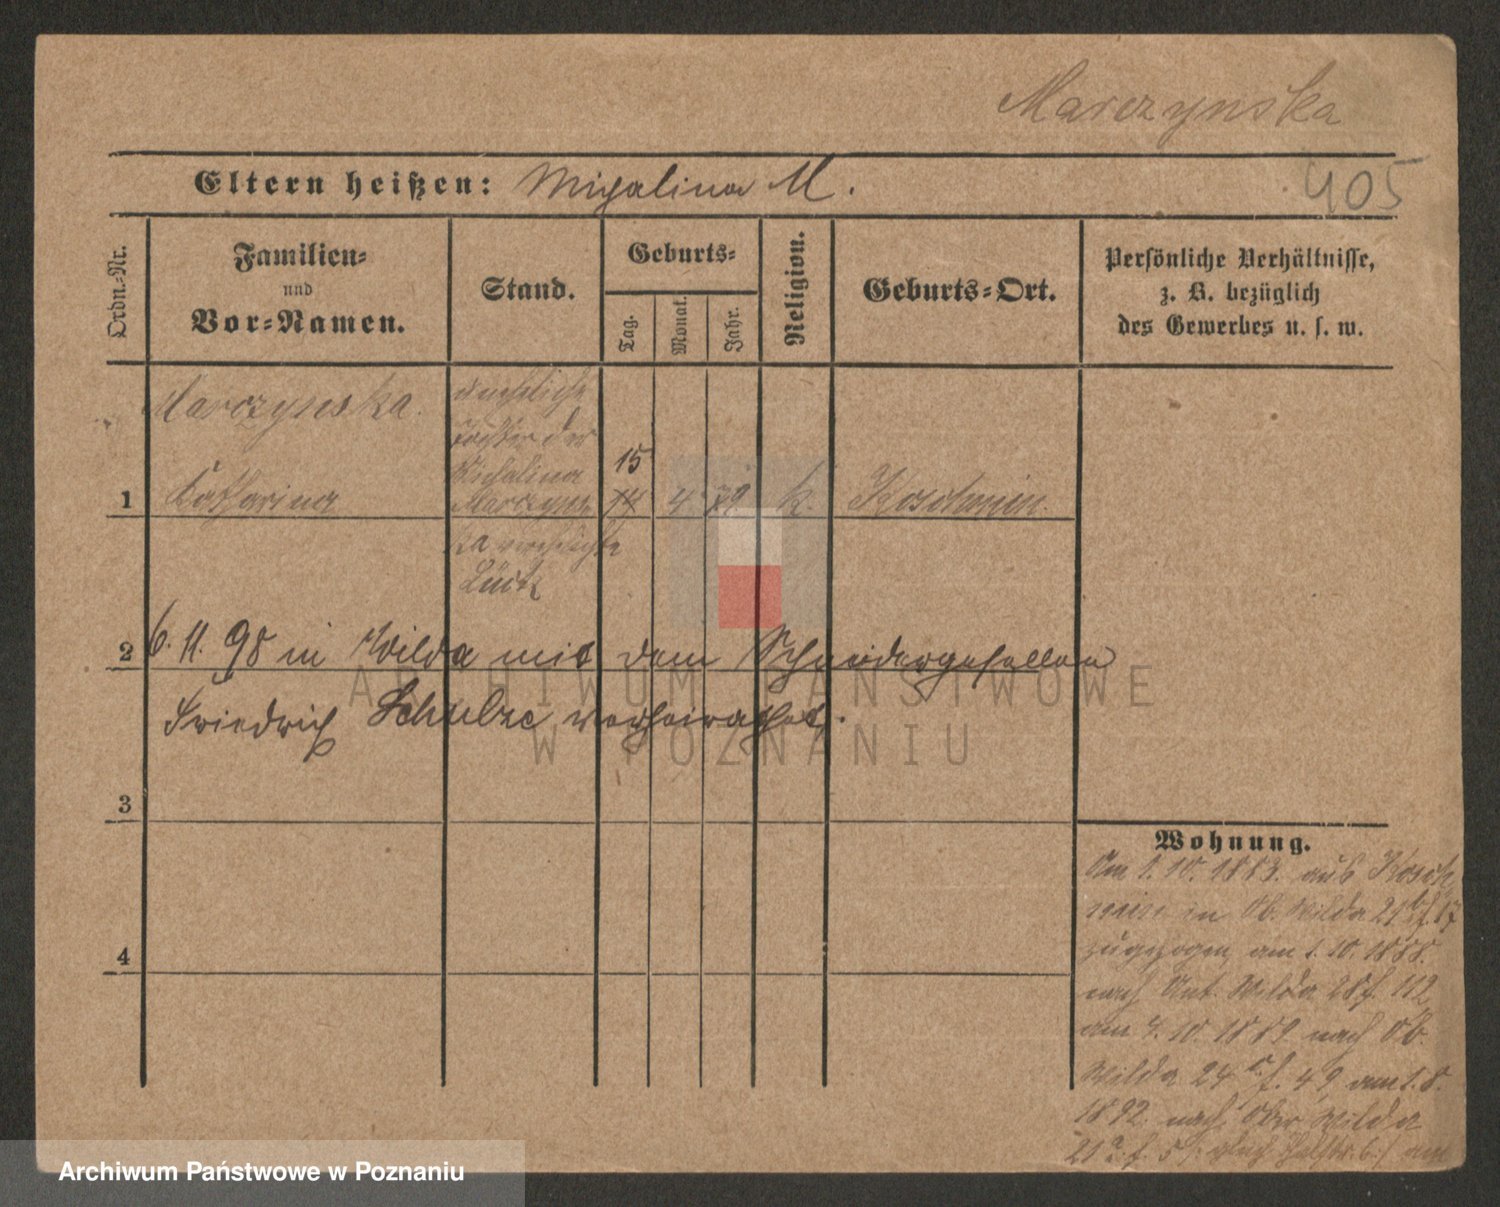 Marczynska
Eltern heißen: Michalina M.
405
Ordn.=Nr.
Familien=
und
Vor=Namen.
Stand.
Geburts=
Tag.
Monat.
Jahr.
Religion.
Geburts=Ort.
Persönliche Verhältnisse,
z. B. bezüglich
des Gewerbes u. s. w.
Marczynska.
uneheliche
Tochter der
Michalina
15
1 Katharina Marczyns 14 4 79 k. Koschmin.
ka verehelichte
Lück
2 6. 11. 98 in Wilda mit dem Schneidergesellen
Friedrich Schulze verheirathet.
3
4
Wohnung.
Am 1. 10. 1883. aus Kosch
min in Ob. Wilda 21 f. 17
zugezogen am 1. 10. 1888.
nach Unt. Wilda 28 f. 112
am 4. 10. 1889 nach Ob.
Wilda 24 f. 49, am 1. 8.
1892. nach Ober Wilda
21a. f. 5 am
ARCHIWUM PAŃSTWOWE
W POZNANIU
Archiwum Państwowe w Poznaniu